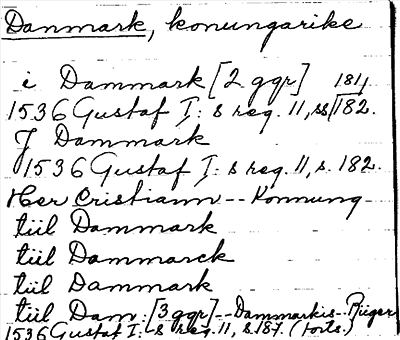 Danmark, konungarike
i Dammark [2 ggr] 181,
1536 Gustaf I:s reg. 11, ss 182.
J Dammark
1536 Gustaf I:s reg. 11, s. 182.
Her Cristiann -- Konnung
tiil Dammark
tiil Dammarck
tiil Dammark
tiil Dam: [3 ggr] -- Dammarkis Riiger
1536 Gustaf I:s reg. 11, s. 187. (forts.)